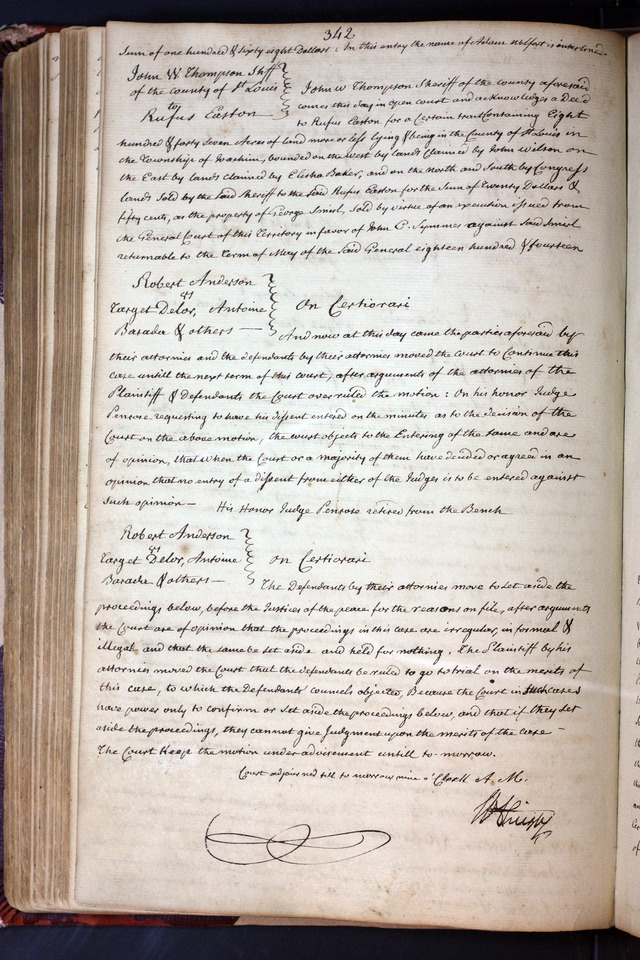 342
Sum of one hundred & sixty eight Dollars. In this entry the name of Adam is interlined
John W. Thompson Shff
of the county of St Louis
to
Rufus Easton
John W Thompson Sheriff of the county aforesaid
comes this day in open court and acknowledges a Deed
to Rufus Easton for a Certain tract containing Eight
hundred & forty seven Acres of land more or less lying & being in the County of St Louis in
the Township of Joachim, bounded on the west by lands Claimed by John Wilson on
the East by lands Claimed by Elisha Baker, and on the North and South by Congress
lands Sold by the Said Sheriff to the Said Rufus Easton for the Sum of Twenty Dollars &
fifty cents, as the property of George Smirl, Sold by virtue of an execution issued from
the General Court of this Territory in favor of John C. Symmes against Said Smirl
returnable to the Term of May of the Said General eighteen hundred & fourteen
Robert Anderson
vs
Target Delor, Antoine
Barada & others —
On Certiorari
And now at this day came the parties aforesaid by
their attornies and the defendants by their attornies moved the court to Continue this
case untill the next term of this court, after arguments of the attornies of the
Plaintiff & Defendants the Court over ruled the motion: On his honor Judge
Penrose requesting to have his dissent entered on the minutes as to the decision of the
Court on the above motion, the court objects to the Entering of the same and are
of opinion, that when the Court or a majority of them have decided or agreed in an
opinion that no entry of a dissent from either of the Judges is to be entered against
Such opinion — His Honor Judge Penrose retired from the Bench
Robert Anderson
vs
Target Delor, Antoine
Barada & others —
On Certiorari
The Defendants by their attornies move to Set aside the
proceedings below, before the Justices of the peace for the reasons on file, after arguments
the Court are of opinion that the proceedings in this case are irregular, informal &
illegal and that the same be set aside and held for nothing, The Plaintiff by his
attornies moved the Court that the defendants be ruled to go to trial on the merits of
this case, to which the Defendants' councils objected, Because the Court in Such cases
have power only to confirm or Set aside the proceedings below, and that if they Set
aside the proceedings, they cannot give Judgment upon the merits of the case —
The Court Keep the motion under advisement untill to-morrow.
Court adjourned till to morrow nine o'Clock A. M.